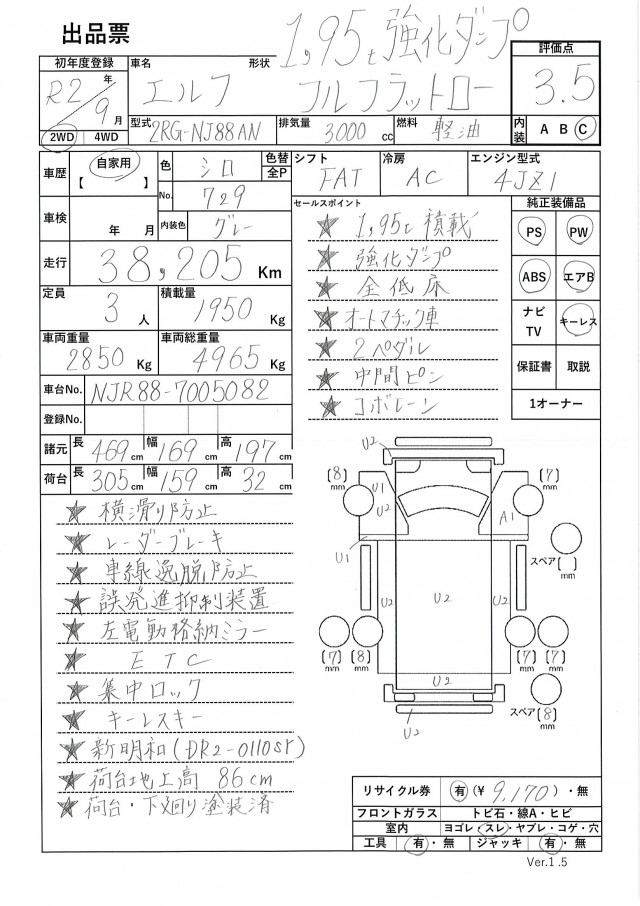 出品票
1,95t強化ダンプ
初年度登録 車名 形状 評価点
R2年/9月 エルフ フルフラットロー 3.5
2WD 4WD 型式 2RG-NJR88AN 排気量 3000cc 燃料 軽油 内装 A B C
車歴 自家用 【 】 色 シロ 色替 全P シフト FAT 冷房 AC エンジン型式 4JZ1
No. 729 セールスポイント 純正装備品
車検 年 月 内装色 グレー ★ 1,95t積載 PS PW
走行 38,205 Km ★ 強化ダンプ
★ 全低床 ABS エアB
定員 3人 積載量 1950 Kg ★ オートマチック車 ナビTV キーレス
車両重量 2850 Kg 車両総重量 4965 Kg ★ 2ペダル
★ 中間ピン 保証書 取説
車台No. NJR88-7005082 ★ コボレーン 1オーナー
登録No.
諸元 長 469cm 幅 169cm 高 197cm
荷台 長 305cm 幅 159cm 高 32cm
★ 横滑り防止
★ レーダーブレーキ
★ 車線逸脱防止
★ 誤発進抑制装置
★ 左電動格納ミラー
★ ETC
★ 集中ロック
★ キーレスキー
★ 新明和(DR2-0110SY)
★ 荷台地上高 86cm
★ 荷台・下廻り塗装済
U2
(8)mm U1 U2 U2 (7)mm
A1
U1 スペア( )mm
U2 U2 U2
(7)mm (8)mm (7)mm (7)mm
U2
U2 スペア(8)mm
リサイクル券 有(¥ 9,170)・無
フロントガラス トビ石・線A・ヒビ
室内 ヨゴレ・スレ・ヤブレ・コゲ・穴
工具 有・無 ジャッキ 有・無
Ver.1.5